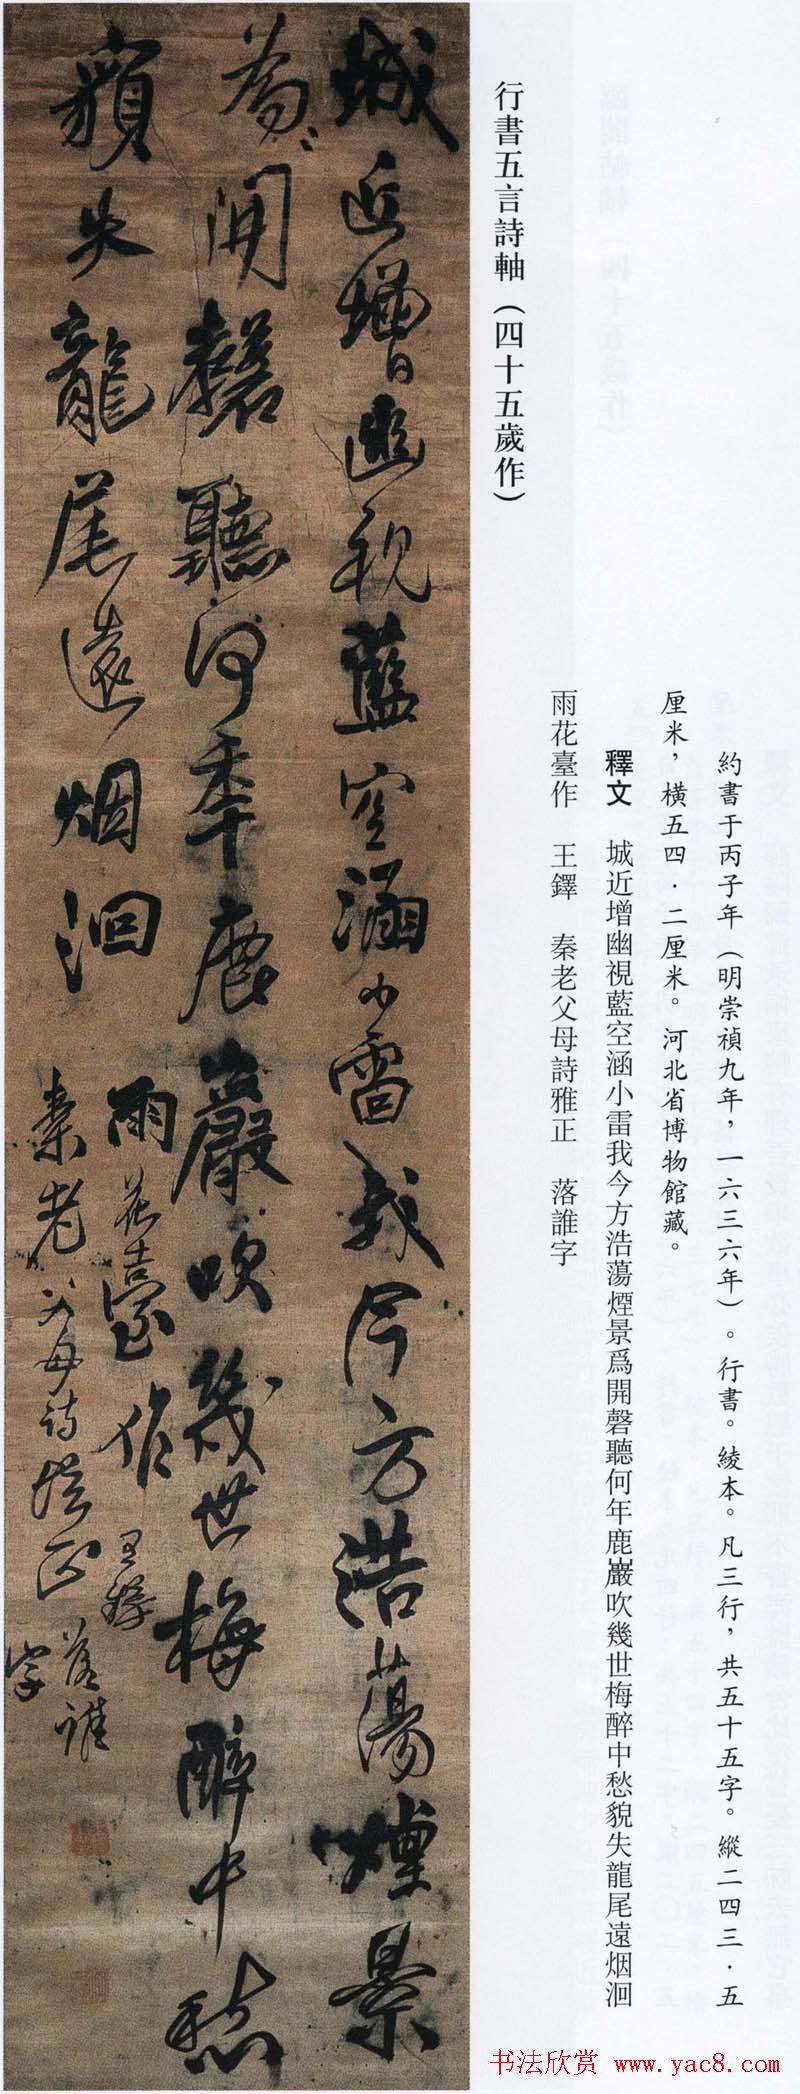 行書五言詩軸（四十五歲作）
約書于丙子年（明崇禎九年，一六三六年）。行書。綾本。凡三行，共五十五字。縱二四三·五
厘米，橫五四·二厘米。河北省博物館藏。
釋文　城近增幽視藍空涵小雷我今方浩蕩煙景爲開磬聽何年鹿巖吹幾世梅醉中愁貌失龍尾遠烟洄
雨花臺作　王鐸　秦老父母詩雅正　落誰字
城近增幽視藍空涵小雷我今方浩蕩煙景
爲開磬聽何年鹿巖吹幾世梅醉中愁
貌失龍尾遠烟洄
雨花臺作 王鐸
秦老父母詩雅正 落誰
字
书法欣赏 www.yac8.com